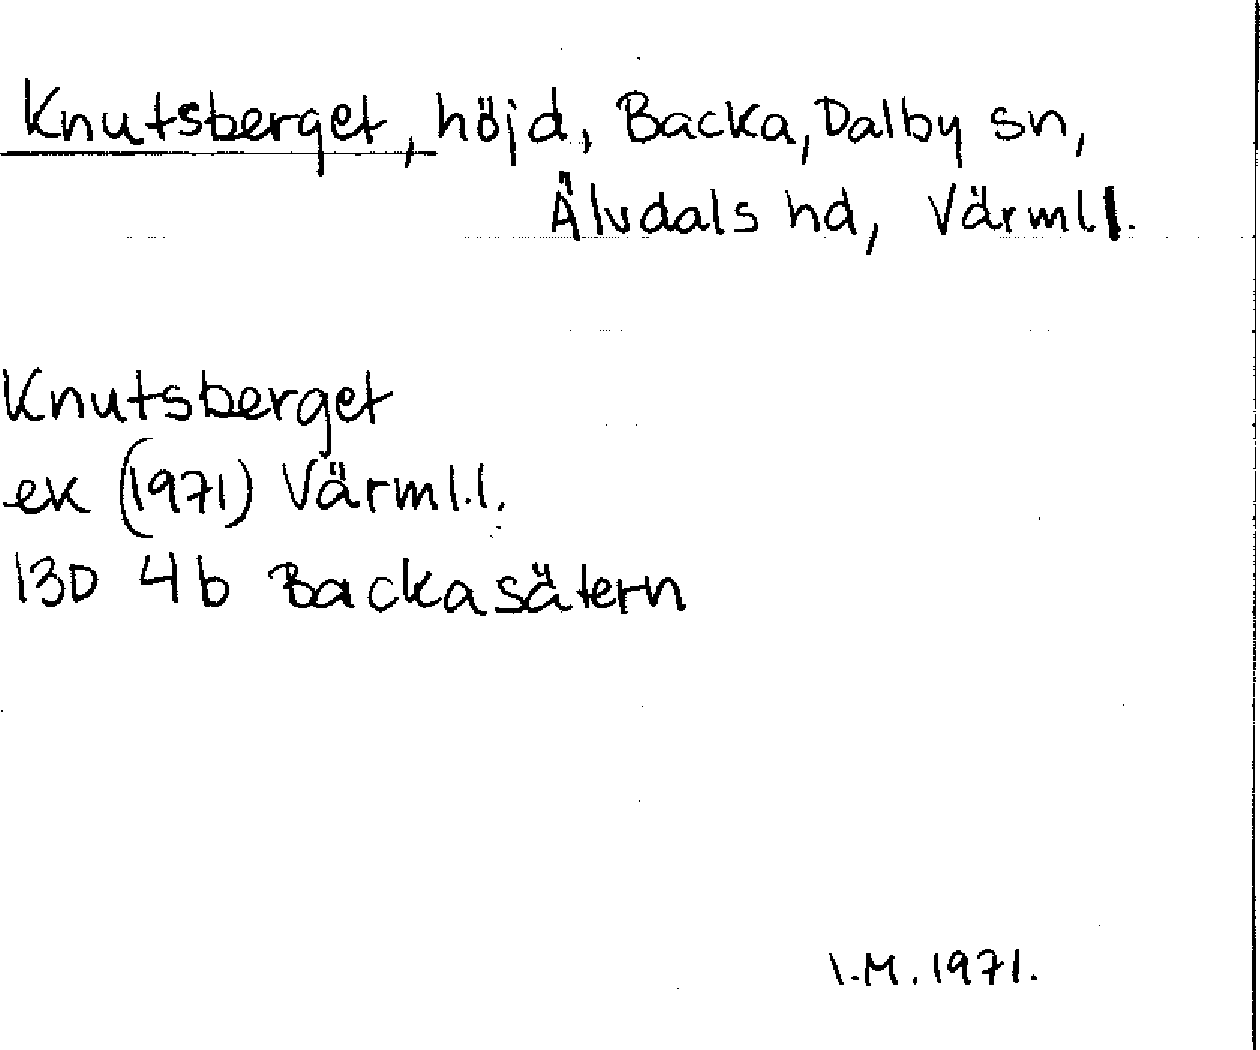 Knutsberget, höjd, Backa, Dalby sn,
Älvdals hd, Värml l.
Knutsberget
ek (1971) Värml.l.
13D 4b Backasätern
I.M. 1971.